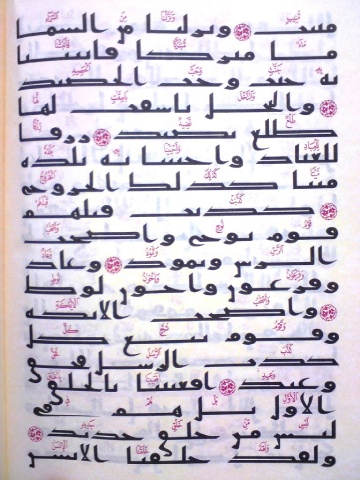 منيب ۝ ونزلنا من السما
ما مبركا فانبتنا
به جنت وحب الحصيد
۝ والنخل باسقت لها
طلع نضيد ۝ رزقا
للعباد واحيينا به بلدة
ميتا كذلك الخروج
۝ كذبت قبلهم
قوم نوح واصحب
الرس وثمود ۝ وعاد
وفرعون واخون لوط
۝ واصحب الايكة
وقوم تبع كل
كذب الرسل فحق
وعيد ۝ افعيينا بالخلق
الاول بل هم في
لبس من خلق جديد ۝
ولقد خلقنا الانسن